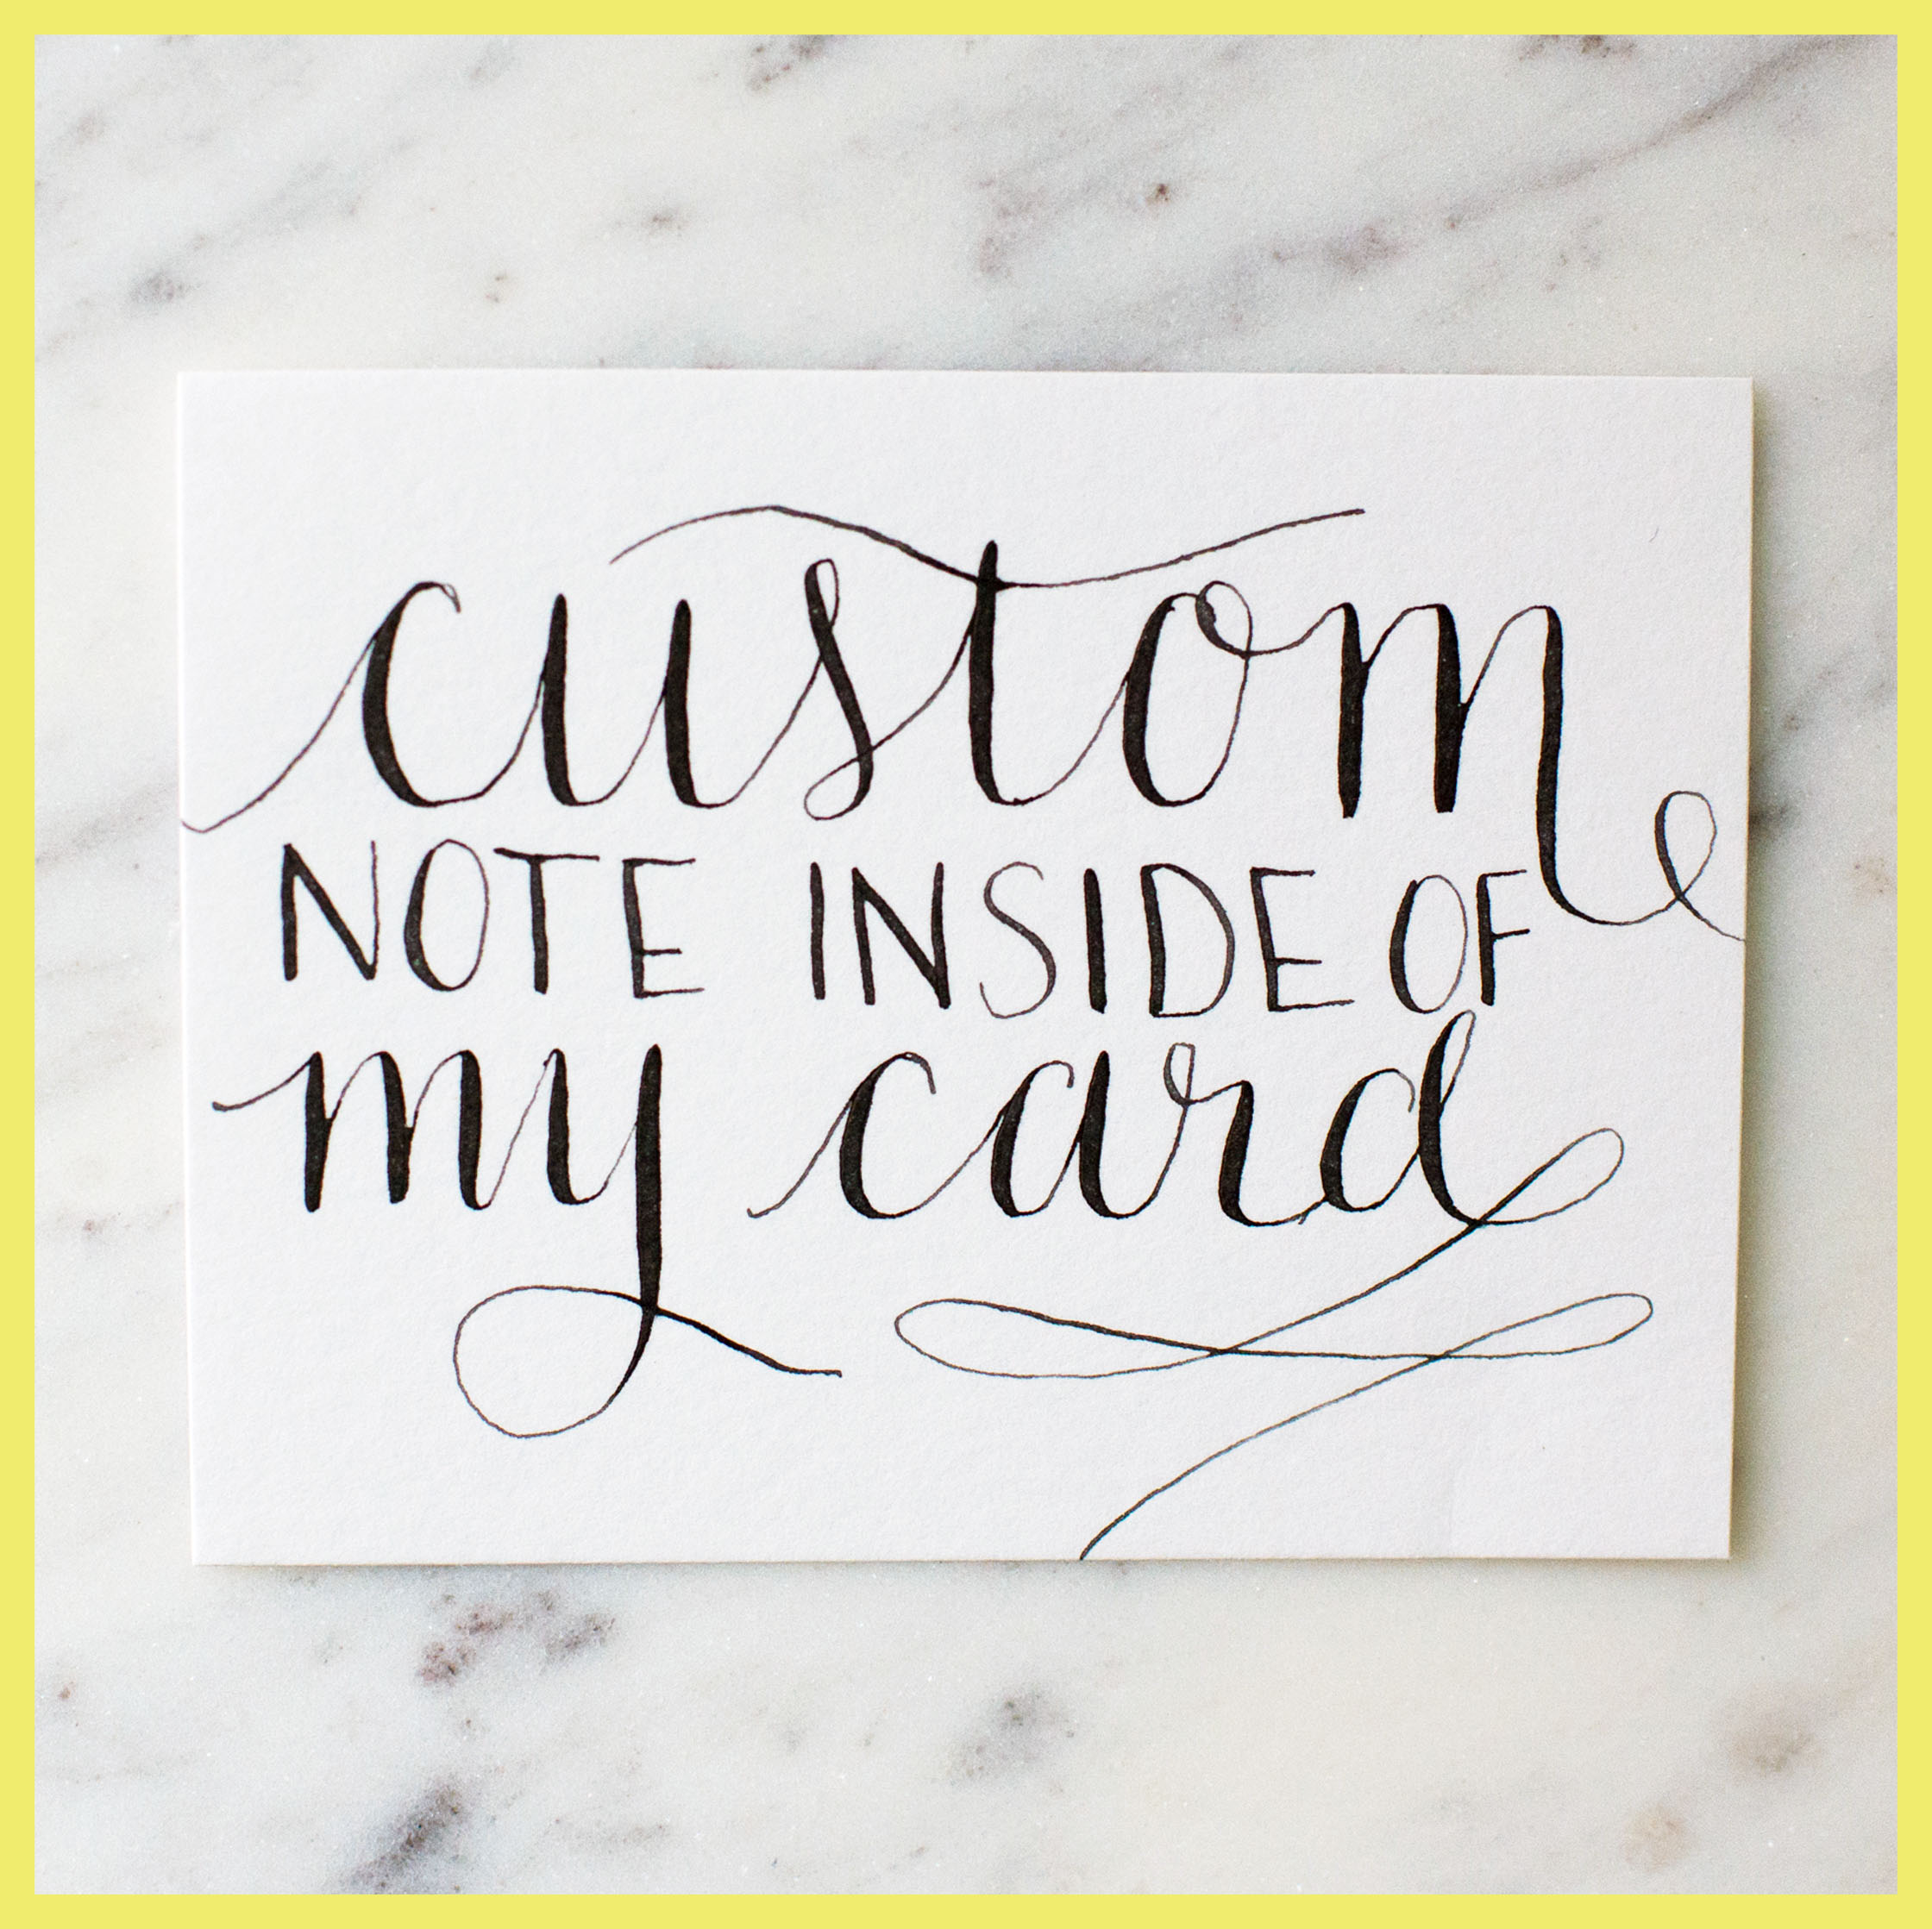 custom
NOTE INSIDE OF
my card